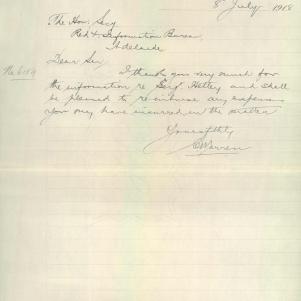 8 July 1918
The Hon. Secy
Red + Information Bureau
Adelaide
Dear Sir
I thank you very much for
the information re Sergt Hetley and shall
be pleased to reimburse any expenses
you may have incurred in the matter
Yours ffly
Warren